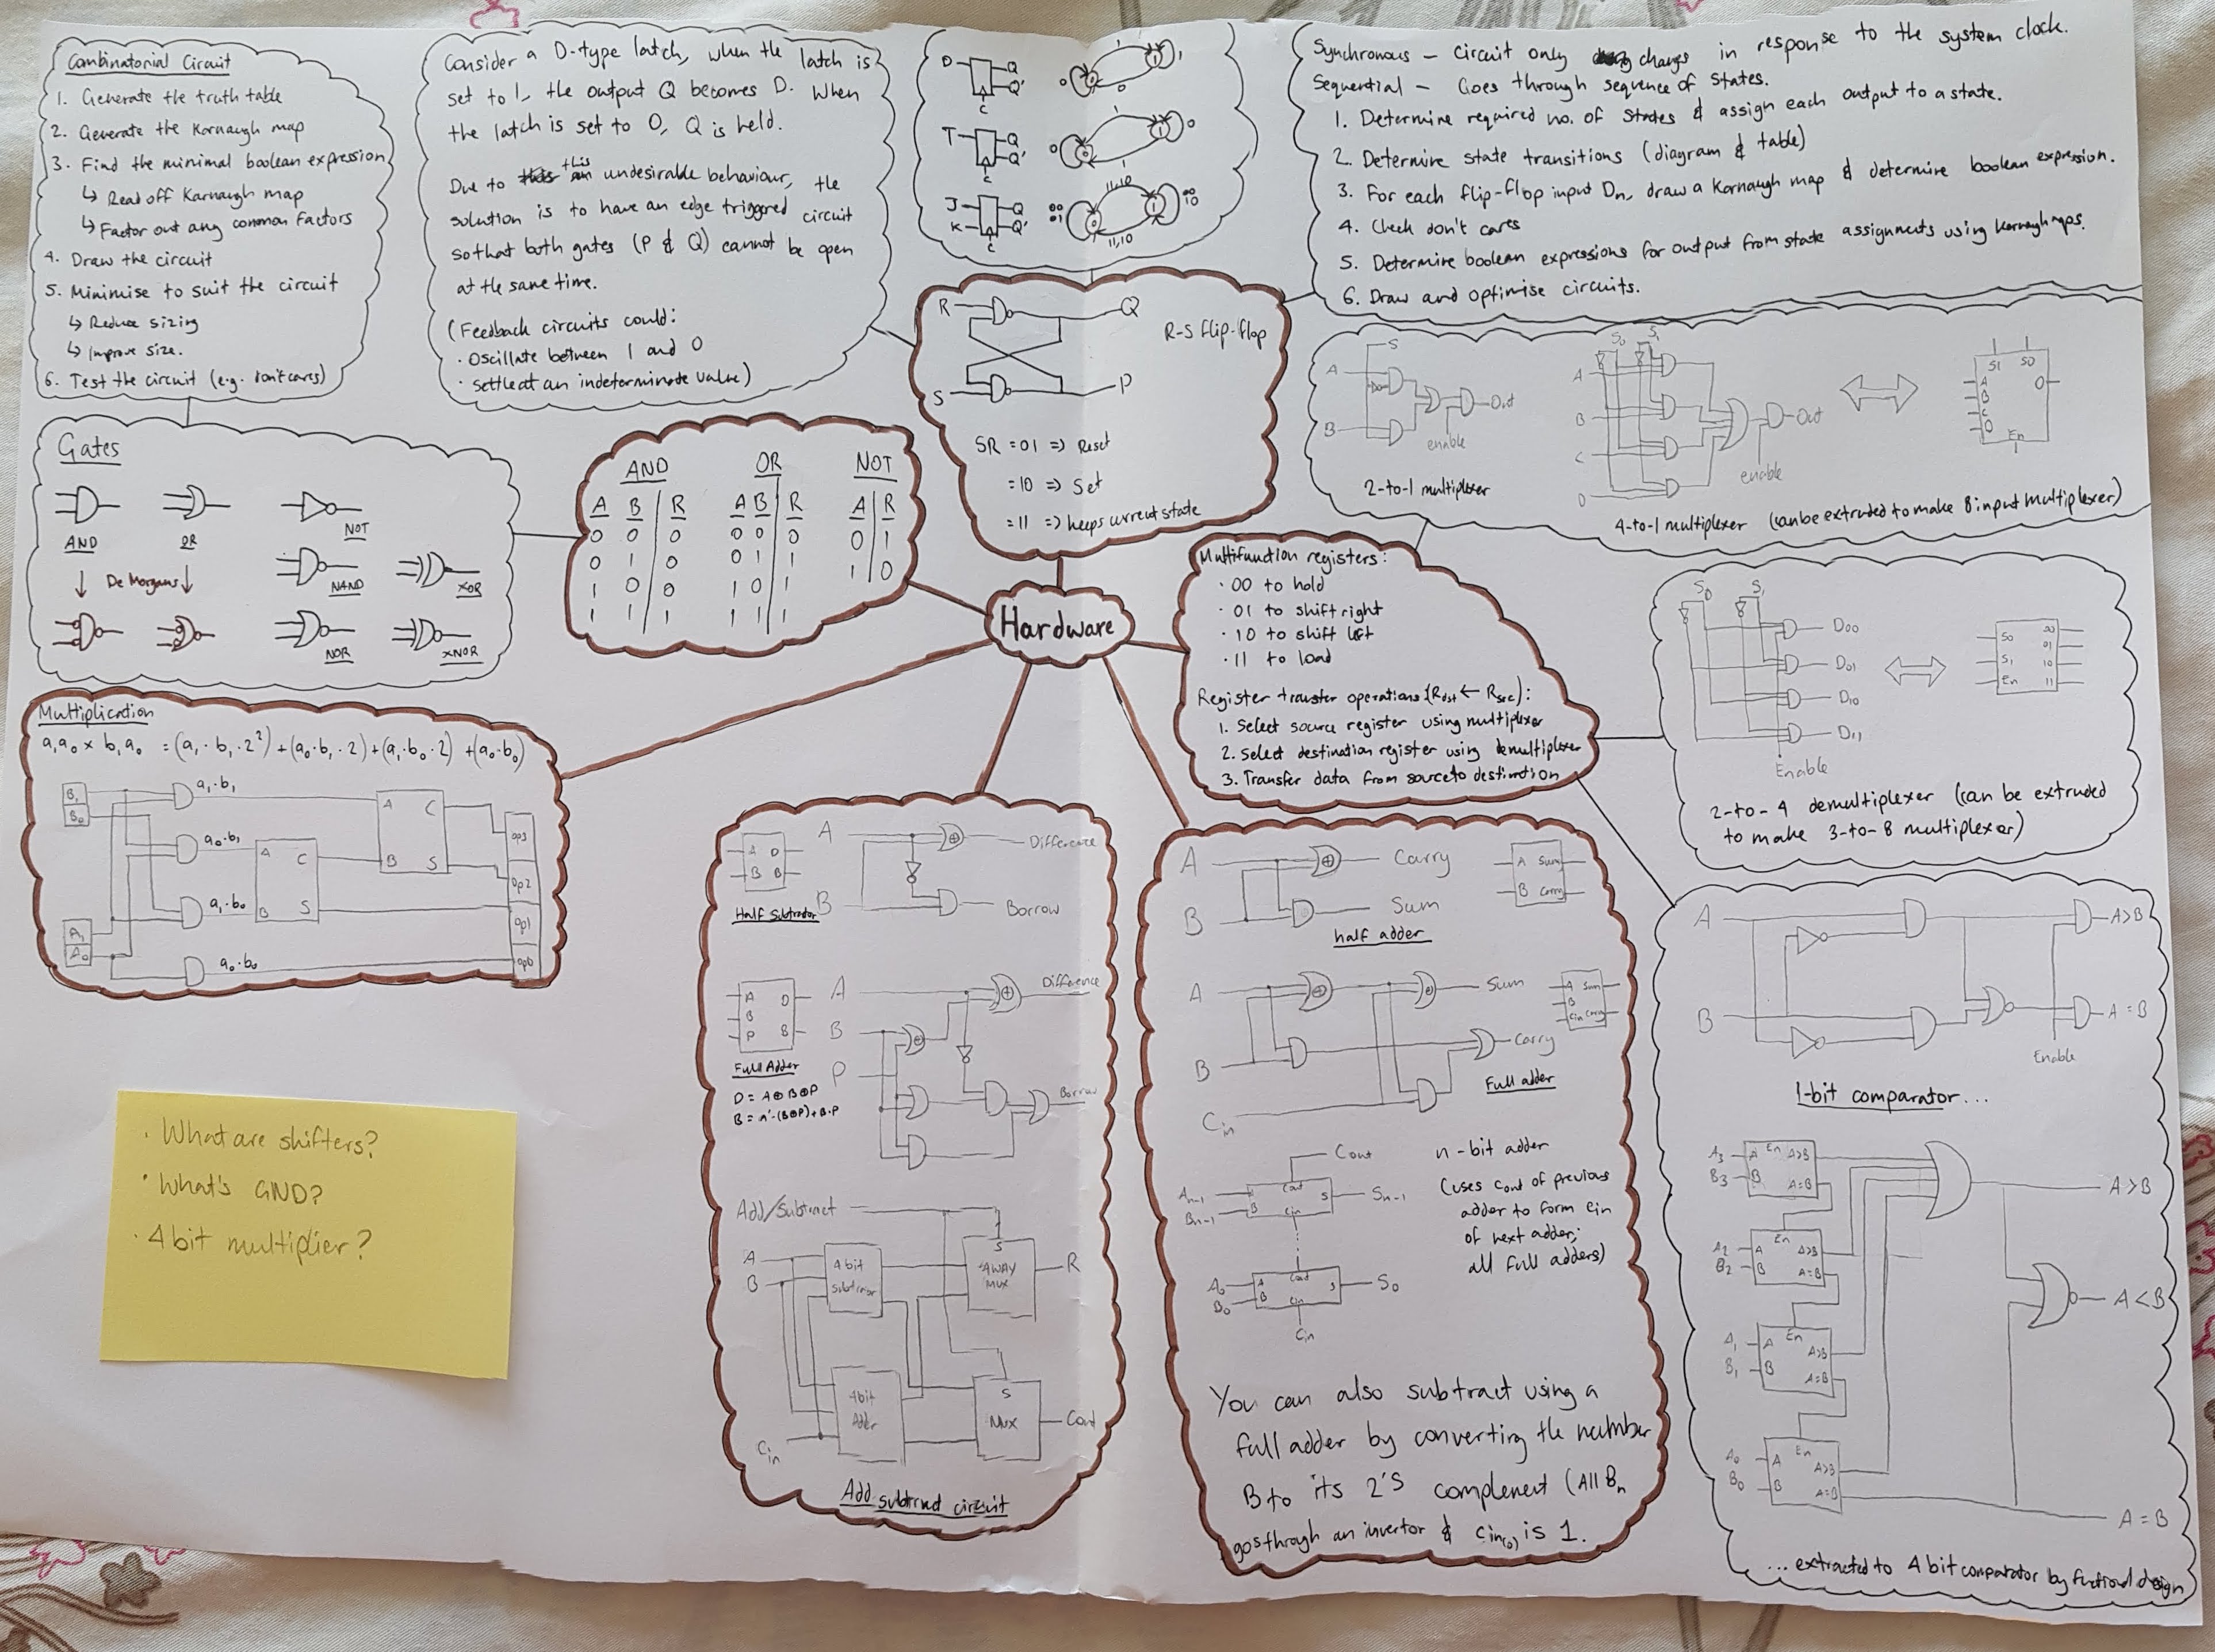 Combinatorial Circuit
1. Generate the truth table
2. Generate the Karnaugh map
3. Find the minimal boolean expression
↳ Read off Karnaugh map
↳ Factor out any common factors
4. Draw the circuit
5. Minimise to suit the circuit
↳ Reduce sizing
↳ Improve size.
6. Test the circuit (e.g. don't cares)
Consider a D-type latch, when the latch is
set to 1, the output Q becomes D. When
the latch is set to 0, Q is held.
Due to this undesirable behaviour, the
solution is to have an edge triggered circuit
so that both gates (P & Q) cannot be open
at the same time.
(Feedback circuits could:
· Oscillate between 1 and 0
· Settle at an indeterminate value)
D Q Q' C
0 1 1 0
T Q Q' C
0 1 0 1
J K Q Q' C
00 01 11,10 00 10 11,10
Synchronous – Circuit only change in response to the system clock.
Sequential – Goes through sequence of states.
1. Determine required no. of states & assign each output to a state.
2. Determine state transitions (diagram & table)
3. For each flip-flop input Dn, draw a Karnaugh map & determine boolean expression.
4. Check don't cares
5. Determine boolean expressions for output from state assignments using karnaugh maps.
6. Draw and optimise circuits.
Gates
AND
OR
NOT
De Morgans
NAND
XOR
NOR
XNOR
AND OR NOT
A B R A B R A R
0 0 0 0 0 0 0 1
0 1 0 0 1 1 1 0
1 0 0 1 0 1
1 1 1 1 1 1
R Q
R-S flip-flop
S P
SR = 01 => Reset
= 10 => Set
= 11 => keeps current state
S
A
B
Out
enable
2-to-1 multiplexer
S0 S1
A
B
C
D
Out
enable
S1 S0
A
B
C
D
O
En
4-to-1 multiplexer (can be extruded to make 8 input multiplexer)
Hardware
Multifunction registers:
· 00 to hold
· 01 to shift right
· 10 to shift left
· 11 to load
Register transfer operations (Rdst ← Rsrc):
1. Select source register using multiplexer
2. Select destination register using demultiplexer
3. Transfer data from source to destination
S0 S1
D00
D01
D10
D11
Enable
S0
S1
En
00
01
10
11
2-to-4 demultiplexer (can be extruded
to make 3-to-8 multiplexer)
Multiplication
a1a0 × b1a0 = (a1·b1·2²)+(a0·b1·2)+(a1·b0·2)+(a0·b0)
B1
B0
a1·b1
a0·b1
a1·b0
a0·b0
A1
A0
A C
B S
A C
B S
op3
op2
op1
op0
· What are shifters?
· What's GND?
· 4 bit multiplier?
A D
B B
Half Subtractor
A
B
Difference
Borrow
A D
B
P B
Full Adder
D = A⊕B⊕P
B = A'·(B⊕P)+B·P
A
B
P
Difference
Borrow
Add/Subtract
A
B
4 bit
Subtractor
S
4WAY
MUX
R
4bit
Adder
S
MUX
Cout
Cin
Add subtract circuit
A
B
Carry
Sum
A Sum
B Carry
half adder
A
B
Cin
Sum
Carry
A Sum
B
Cin Carry
Full adder
Cout
An-1
Bn-1
Cout
B S
Cin
Sn-1
A0
B0
Cout
A
B S
Cin
S0
Cin
n-bit adder
(uses Cout of previous
adder to form cin
of next adder;
all full adders)
You can also subtract using a
full adder by converting the number
B to its 2's complement (All Bn
goes through an invertor & Cin(0) is 1.
A
B
A>B
A=B
Enable
1-bit comparator...
A3
B3
A En A>B
B A=B
A2
B2
En
A A>B
B A=B
A1
B1
En
A A>B
B A=B
A0
B0
En
A A>B
B A=B
A>B
A<B
A=B
...extracted to 4 bit comparator by functional design